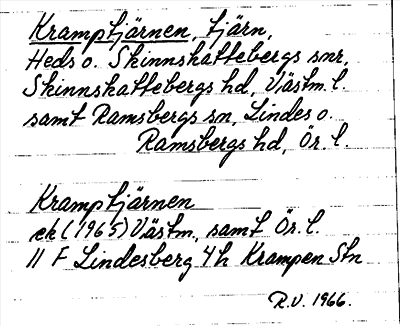 Kramptjärnen, tjärn,
Heds o. Skinnskattebergs snr,
Skinnskattebergs hd, Västm. l.
samt Ramsbergs sn, Lindes o.
Ramsbergs hd, Ör. l.
Kramptjärnen
ek (1965) Västm., samt Ör. l.
11 F Lindesberg 4h Krampen Stn
R.V. 1966.